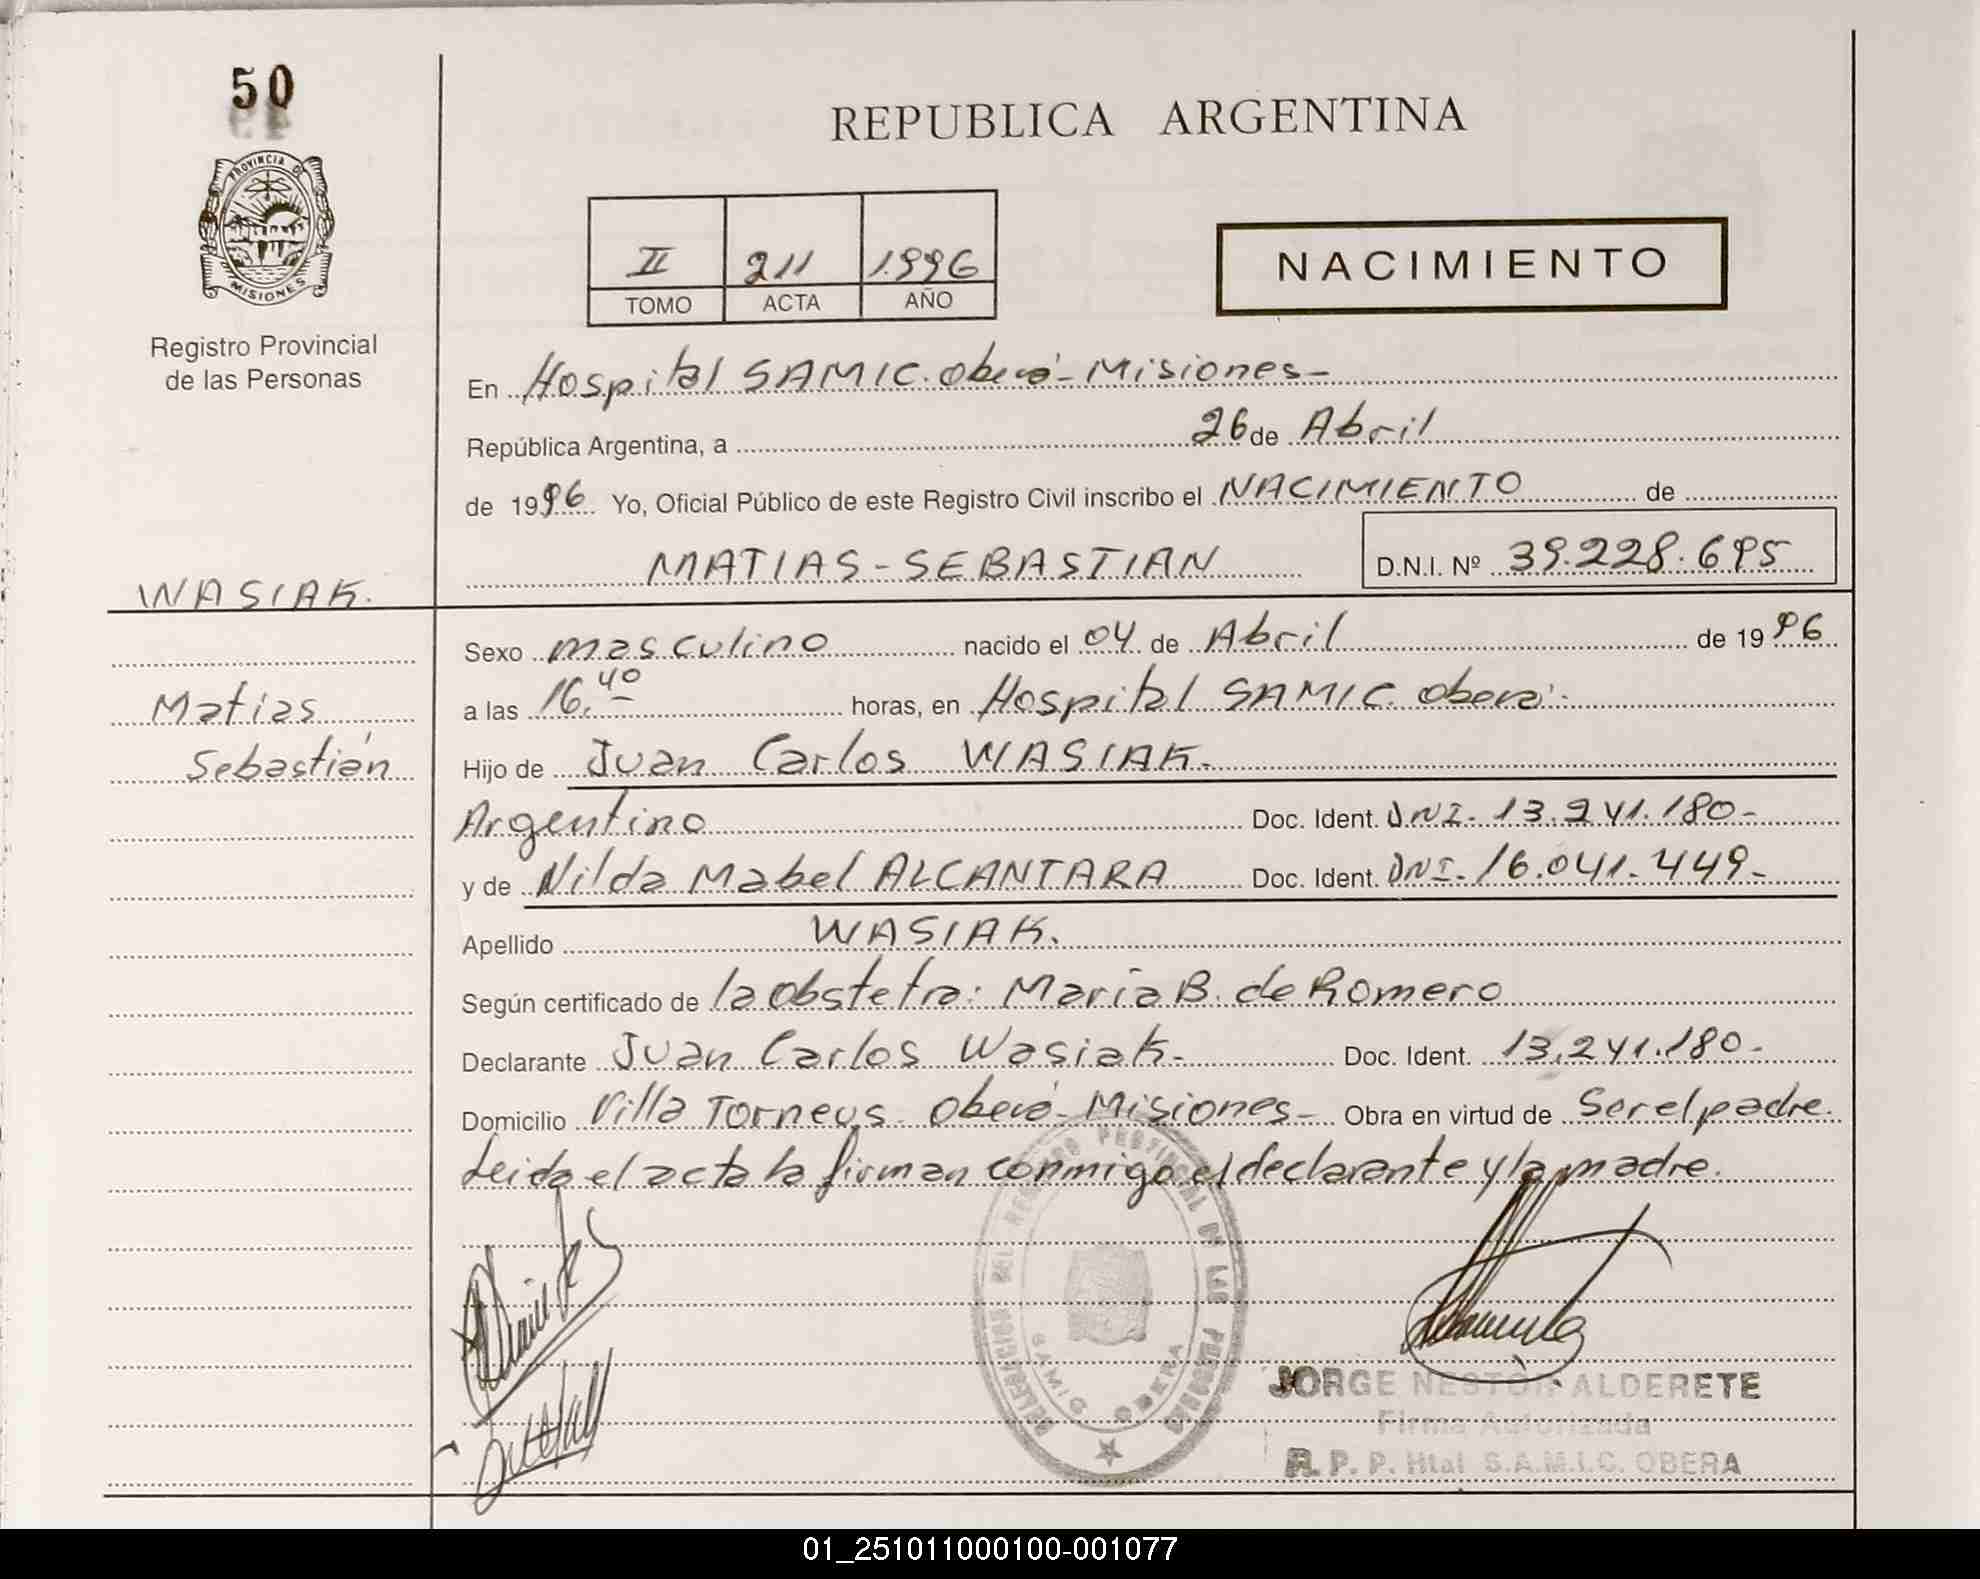 50
PROVINCIA DE
MISIONES
Registro Provincial
de las Personas
REPUBLICA ARGENTINA
II 211 1996
TOMO ACTA AÑO
NACIMIENTO
En Hospital SAMIC. Oberá - Misiones -
República Argentina, a 26 de Abril
de 1996 Yo, Oficial Público de este Registro Civil inscribo el NACIMIENTO de
MATIAS - SEBASTIAN D.N.I. Nº 39.228.695
WASIAK.
Matias
Sebastián
Sexo masculino nacido el 04 de Abril de 1996
a las 16,40 horas, en Hospital SAMIC. Oberá.
Hijo de Juan Carlos WASIAK.
Argentino Doc. Ident. DNI. 13.241.180-
y de Nilda Mabel ALCANTARA Doc. Ident. DNI. 16.041.449-
Apellido WASIAK.
Según certificado de la obstetra: María B. de Romero
Declarante Juan Carlos Wasiak- Doc. Ident. 13.241.180-
Domicilio Villa Torneus - Oberá - Misiones - Obra en virtud de Ser el padre.
Leida el acta la firman conmigo el declarante y la madre.
DELEGACION DEL REGISTRO PROVINCIAL DE LAS PERSONAS
SAMIC OBERA
JORGE NESTOR ALDERETE
Firma Autorizada
R. P. P. Htal S.A.M.I.C. OBERA
01_251011000100-001077